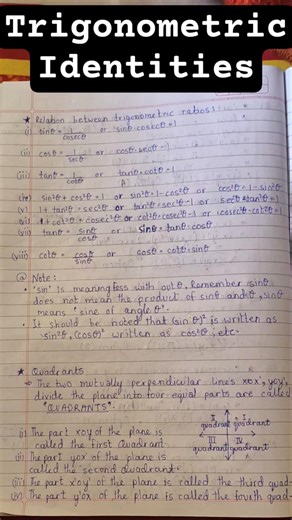 Trigonometric
Identities
★ Relation between trigonometric ratios:
(i) sinθ = 1/cosecθ or sinθ·cosecθ = 1
(ii) cosθ = 1/secθ or cosθ·secθ = 1
(iii) tanθ = 1/cotθ or tanθ·cotθ = 1
(iv) sin²θ + cos²θ = 1 or sin²θ = 1 - cos²θ or cos²θ = 1 - sin²θ
(v) 1 + tan²θ = sec²θ or tan²θ = sec²θ - 1 or sec²θ - tan²θ = 1
(vi) 1 + cot²θ = cosec²θ or cot²θ = cosec²θ - 1 or cosec²θ - cot²θ = 1
(vii) tanθ = sinθ/cosθ or sinθ = tanθ·cosθ
(viii) cotθ = cosθ/sinθ or cosθ = cotθ·sinθ
Note:
• 'sin' is meaningless with out θ, Remember sinθ
does not mean the product of sin and θ, sinθ
means 'sine of angle θ'.
• It should be noted that (sinθ)² is written as
sin²θ, (cosθ)² written as cos²θ, etc.
★ Quadrants
⇒ The two mutually perpendicular lines xox', yoy',
divide the plane into four equal parts are called
"QUADRANTS".
II I
quadrant quadrant
III IV
quadrant quadrant
(i) The part xoy of the plane is
called the first Quadrant
(ii) The part yox' of the plane is
called the second quadrant.
(iii) The part x'oy' of the plane is called the third quad-
(iv) The part y'ox of the plane is called the fourth quad-